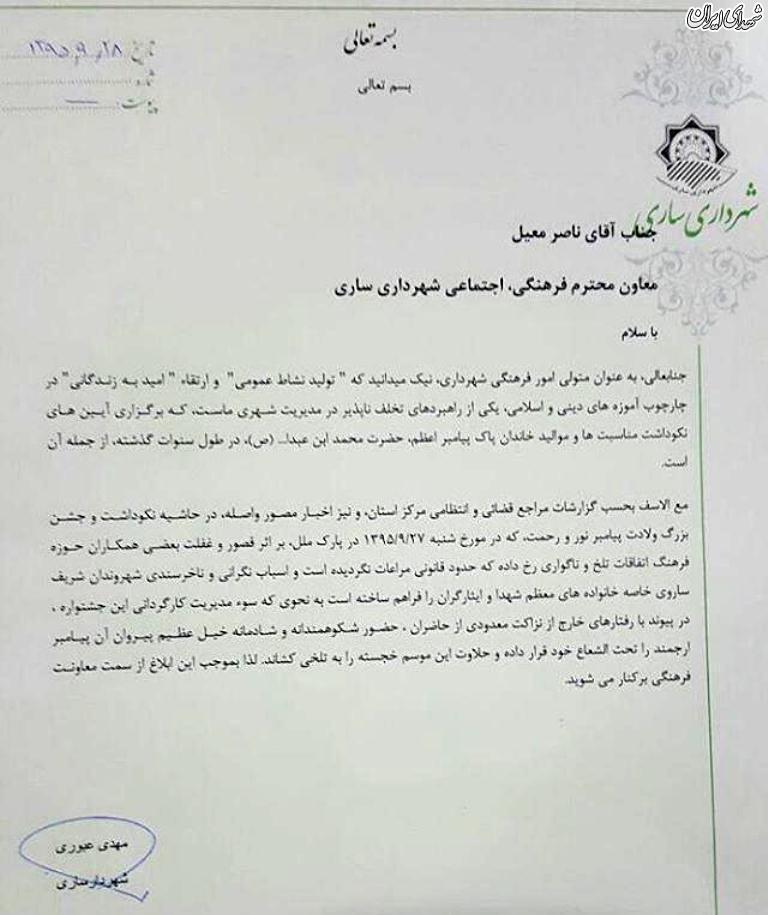 شهدای ایران
بسمه تعالی
تاریخ ۱۳۹۵٫۹٫۲۸
شماره
پیوست —
بسم تعالی
شهرداری ساری
جناب آقای ناصر معیل
معاون محترم فرهنگی، اجتماعی شهرداری ساری
با سلام
جنابعالی، به عنوان متولی امور فرهنگی شهرداری، نیک میدانید که " تولید نشاط عمومی" و ارتقاء " امید به زندگانی" در
چارچوب آموزه های دینی و اسلامی، یکی از راهبردهای تخلف ناپذیر در مدیریت شهری ماست، که برگزاری آیین های
نکوداشت مناسبت ها و موالید خاندان پاک پیامبر اعظم، حضرت محمد ابن عبدا... (ص)، در طول سنوات گذشته، از جمله آن
است.
مع الاسف بحسب گزارشات مراجع قضائی و انتظامی مرکز استان، و نیز اخبار مصور واصله، در حاشیه نکوداشت و جشن
بزرگ ولادت پیامبر نور و رحمت، که در مورخ شنبه ۱۳۹۵/۹/۲۷ در پارک ملل، بر اثر قصور و غفلت بعضی همکاران حوزه
فرهنگ اتفاقات تلخ و ناگواری رخ داده که حدود قانونی مراعات نگردیده است و اسباب نگرانی و ناخرسندی شهروندان شریف
ساروی خاصه خانواده های معظم شهدا و ایثارگران را فراهم ساخته است به نحوی که سوء مدیریت کارگردانی این جشنواره ،
در پیوند با رفتارهای خارج از نزاکت معدودی از حاضران ، حضور شکوهمندانه و شادمانه خیل عظیم پیروان آن پیامبر
ارجمند را تحت الشعاع خود قرار داده و حلاوت این موسم خجسته را به تلخی کشاند. لذا بموجب این ابلاغ از سمت معاونت
فرهنگی برکنار می شوید.
مهدی عبوری
شهردار ساری